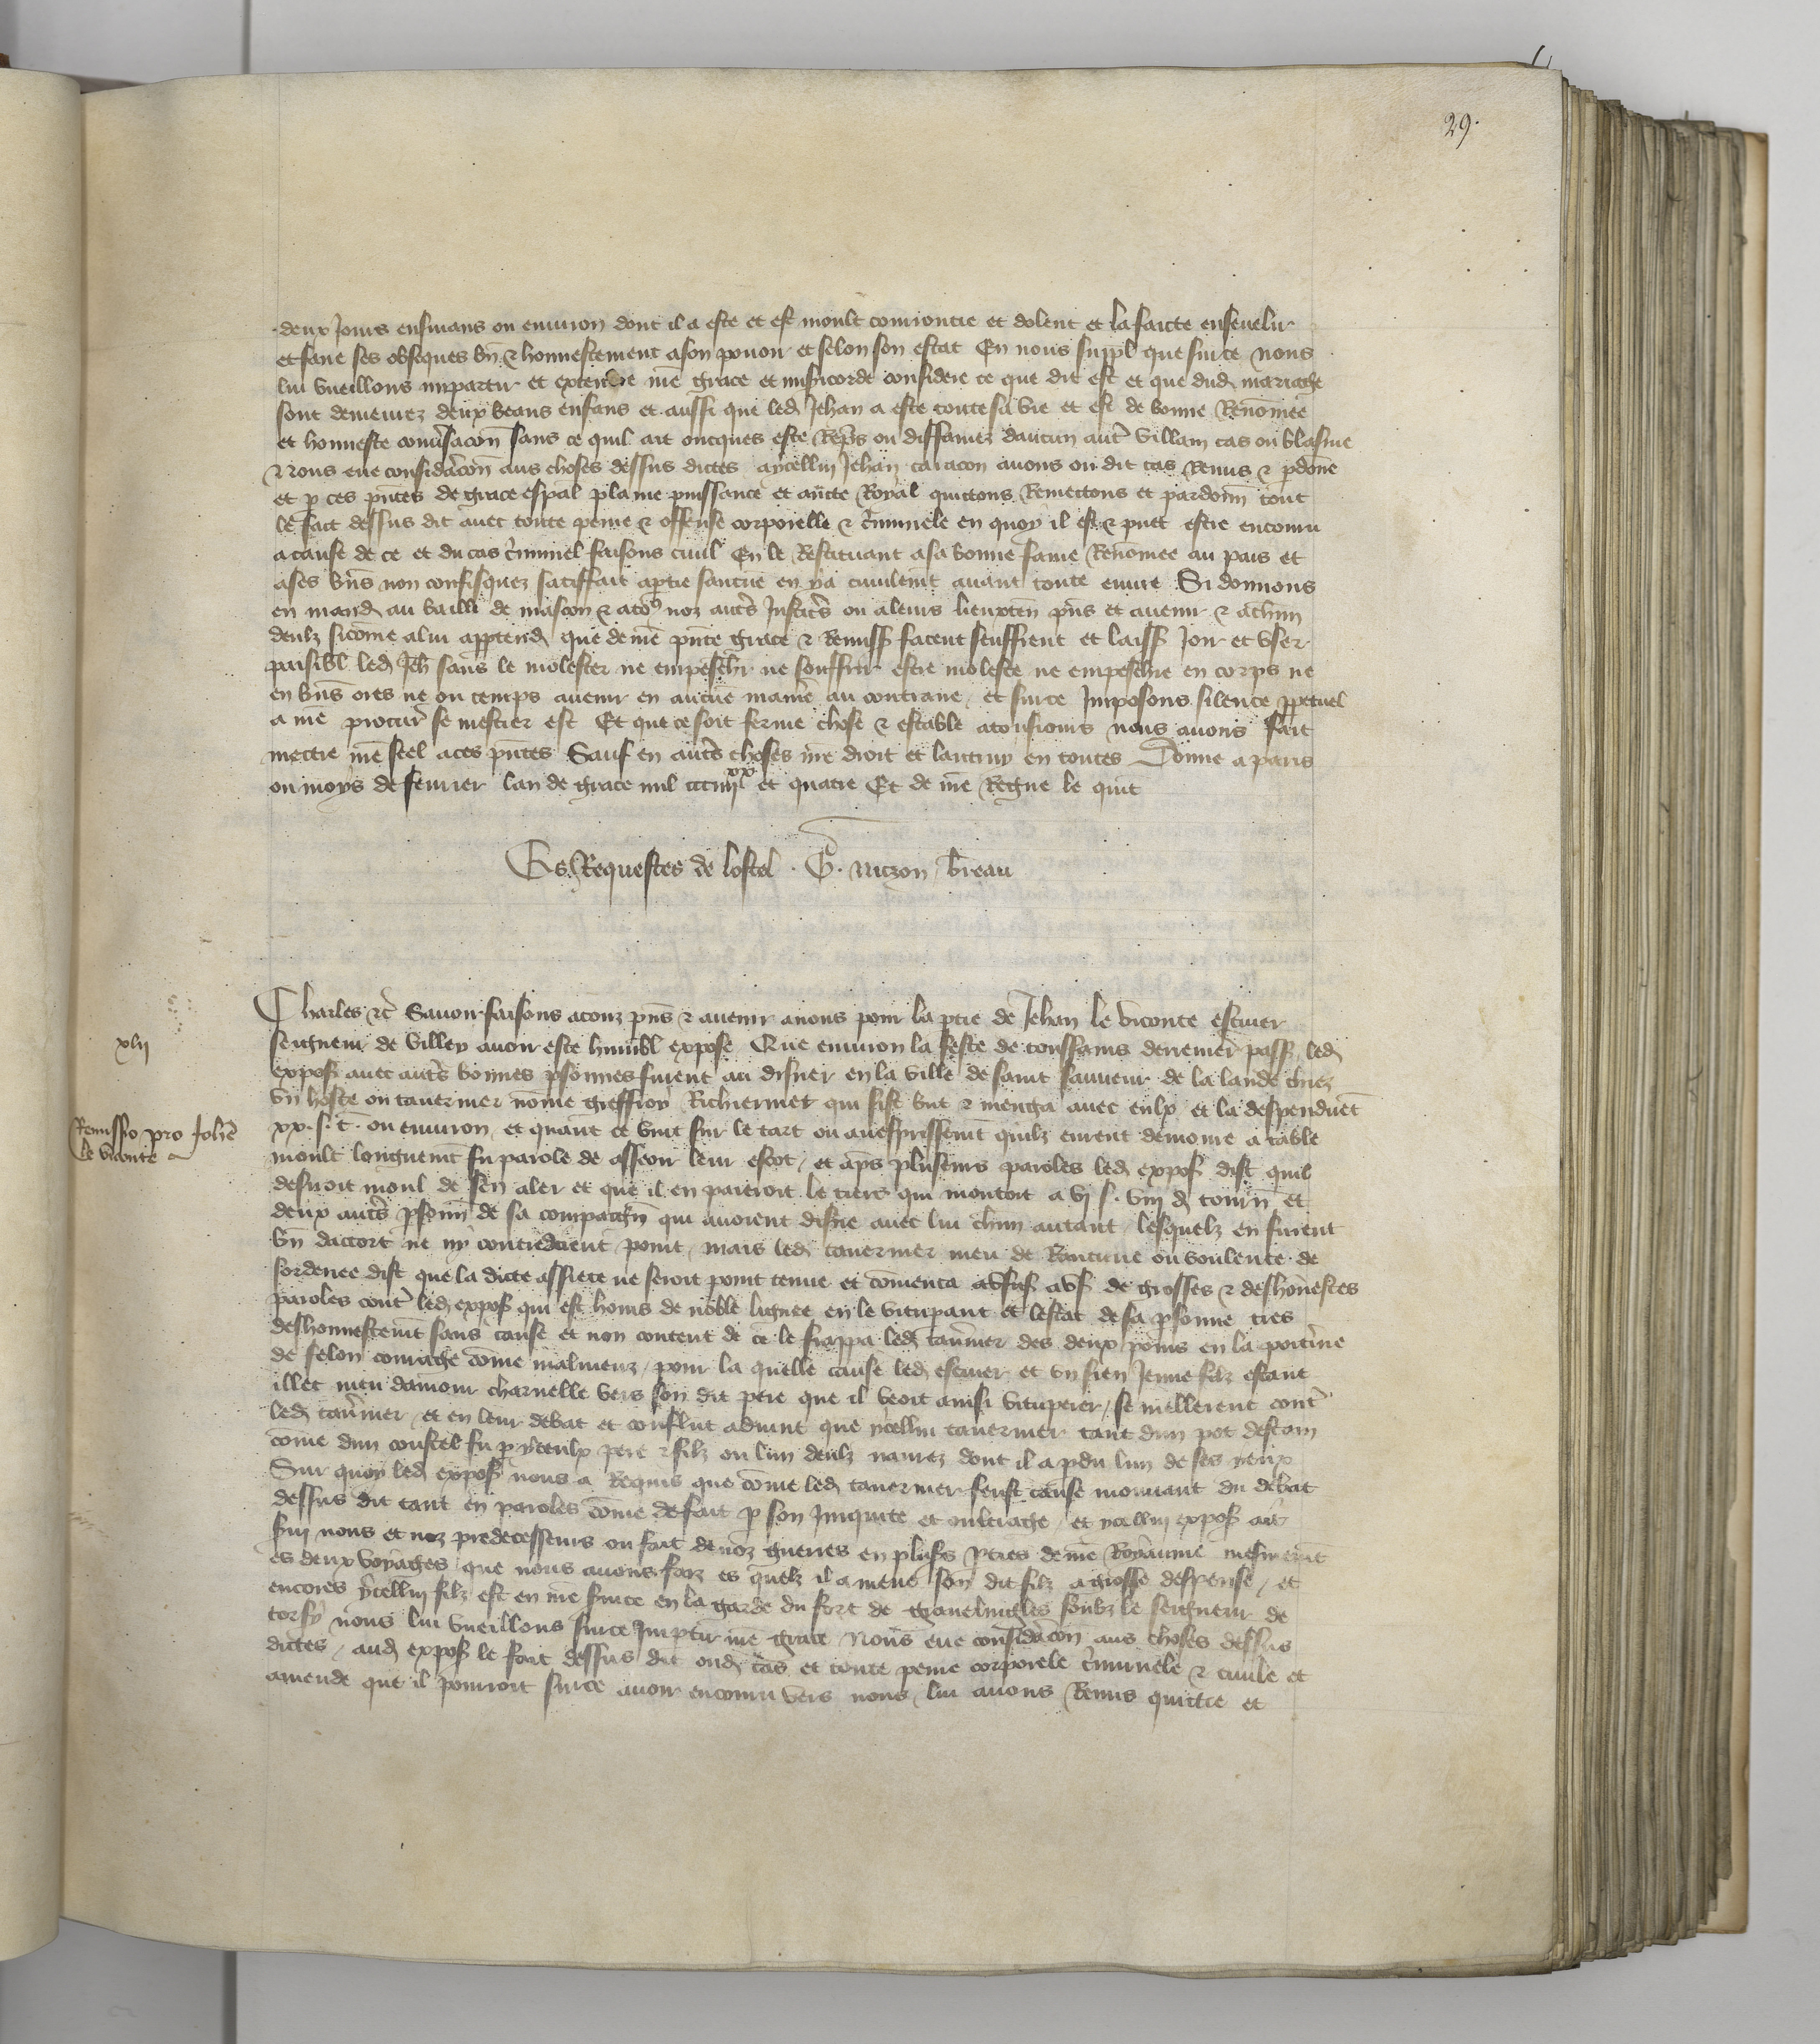 29.
deux jours ensuians ou environ dont il a este et est moult courroucie et dolent et la faicte ensevelir
et faire ses obseques bn̄ & honnestement a son povoir et selon son estat En nous suppl que sur ce nous
lui vueillons impartir et extendre nr̄e grace et misericorde consideré ce que dit est et que dud mariage
sont demeurez deux beaus enfans et aussi que led Jehan a este toute sa vie et est de bonne Renōmee
et honneste conv̄sacōn sans ce quil ait oncques este Rep̄s ou diffamez daucun autr̄ villain cas ou blasme
Nous eue considāc̄on aus choses dessus dictes a ycellui Jehan avons ou dit cas Remis & p̄donē
et p ces pn̄tes de grace esp̄al plaine puissance et auc̄te Royal quictons Remectons et pardonn̄ tout
le fait dessus dit avec toute peine & offense corporelle & c̄iminele en quoy il est & puet estre encouru
a cause de ce et du cas c̄iminel faisons civil En le Restituant a sa bonne fame Renōmee au pais et
a ses bn̄s non confisquez satiffait a ptie sancune en y a civilemt avant toute euvre Si donnons
en mand au bailli de mascon & a to9 noz autr̄s Justic̄s ou a leurs lieuxten̄ pn̄s et avenir & a chūn
deulz sicōme a lui apptiend que de nr̄e pn̄te grace & Remiss facent seuffrent et laiss joir et user
paisibl led Jeh̄ sans le molester ne empeschr̄ ne souffrir estre moleste ne empeschie en corps ne
en bn̄s ores ne ou temps avenir en aucūe manr̄e au contraire / et sur ce Imposons silence ppetuel
a nr̄e procur̄ se mestier est Et que ce soit ferme chose & estable a tousiours nous avons fait
mectre nr̄e seel a ces pn̄tes Sauf en autr̄s choses nr̄e droit et lautruy en toutes Donne a paris
ou moys de fevrier lan de grace mil ccciiijxx et quatre Et de nr̄e Regne le quīt
Es Requestes de lostel . G. nitzon / breau
Charles &c̄ Savoir faisons a touz pn̄s & avenir a nous pour la ptie de Jehan le viconte escuier
seigneur de Villey avoir este humbl expose Que environ la feste de toussains derrenier̄ pass led
expos avec autr̄s bonnes psonnes furent au disner en la ville de saint sauveur de la lande chiez
un hoste ou tavernier nōme Richiermet qui fist but & menga avec eulx et la despendirēt
xx. s. t̄. ou environ / et quant ce vint sur le tart ou avesprissemt quilz eurent demoure a table
moult longuemt fu parole de asseoir leur escot / et ap̄s plusieurs paroles led expos dist quil
desiroit moul de sen aler et que il en paieroit le tiers qui montoit a vj s. viij d tourn̄ et
deux autr̄s psonn̄ de sa compaign̄ qui avoient disne avec lui chūn autant / lesquelz en furent
bn̄ daccort ne ny contredirent point / mais led tavernier meu de Rancune ou voulente de
sordenee dist que la dicte assiete ne seroit point tenue et cōmenca a dis de grosses & deshonnestes
paroles contr̄ led expos qui est homs de noble lignee en le vitupant et lestat de sa psonne tres
deshonnestemt sans cause et non content de ce le frappa led tav̄nier des deux poins en la poitrine
de felon courage cōme malmeuz / pour la quelle cause led escuier et un sien Jeune filz estant
illec meu damour charnelle vers son dit pere que il veoit ainsi vituperer / se mellerent contr̄
led tav̄nier / et en leur debat et conflict advint que ycellui tavernier tant dun pot destain
cōme dun coustel fu p yceulx pere & filz ou lun deulz navrez dont il a pdu lun de ses yeux
Sur quoy led expos nous a Requis que cōme led tavernier feust cause mouvant du debat
dessus dit tant en paroles cōme de fait p son Iniquite et oultrage / et ycellui expos ait
servi nous et noz predecesseurs ou fait de noz guerres en plus̄s pties de nr̄e Royaume mesmemt
es deux voyages que nous avons faiz es quelz il a mene son dit filz a grosse despense / et
encores ycellui filz est en nr̄e svice en la garde du fort de Gravelingles soubz le seigneur de
torsy nous lui vueillons sur ce Imptir nr̄e grace Nous eue considāc̄on aus choses dessus
dictes / aud expos le fait dessus dit oud cas et toute peine corporele c̄iminele & civile et
amende que il pourroit sur ce avoir encouru vers nous / lui avons Remis quictie et
xlij
Remissio pro Joh̄e
le viconte